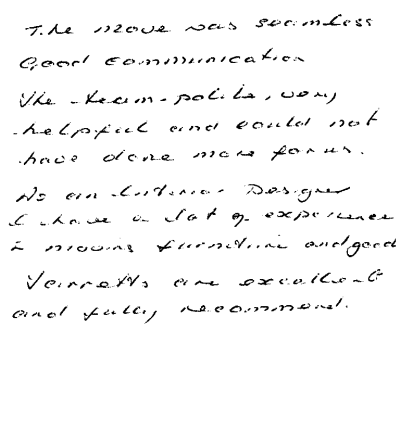 The move was seamless
Good communication
The team polite, very
helpful and could not
have done more for us.
As an Interior Designer
I have a lot of experience
in moving furniture and good
Varretts are excellent
and fully recommend.